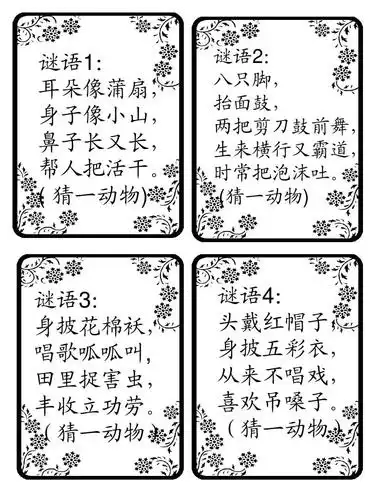 谜语1:
耳朵像蒲扇,
身子像小山,
鼻子长又长,
帮人把活干。
(猜一动物)
谜语2:
八只脚,
抬面鼓,
两把剪刀鼓前舞,
生来横行又霸道,
时常把泡沫吐。
(猜一动物)
谜语3:
身披花棉袄,
唱歌呱呱叫,
田里捉害虫,
丰收立功劳。
(猜一动物)
谜语4:
头戴红帽子,
身披五彩衣,
从来不唱戏,
喜欢吊嗓子。
(猜一动物)